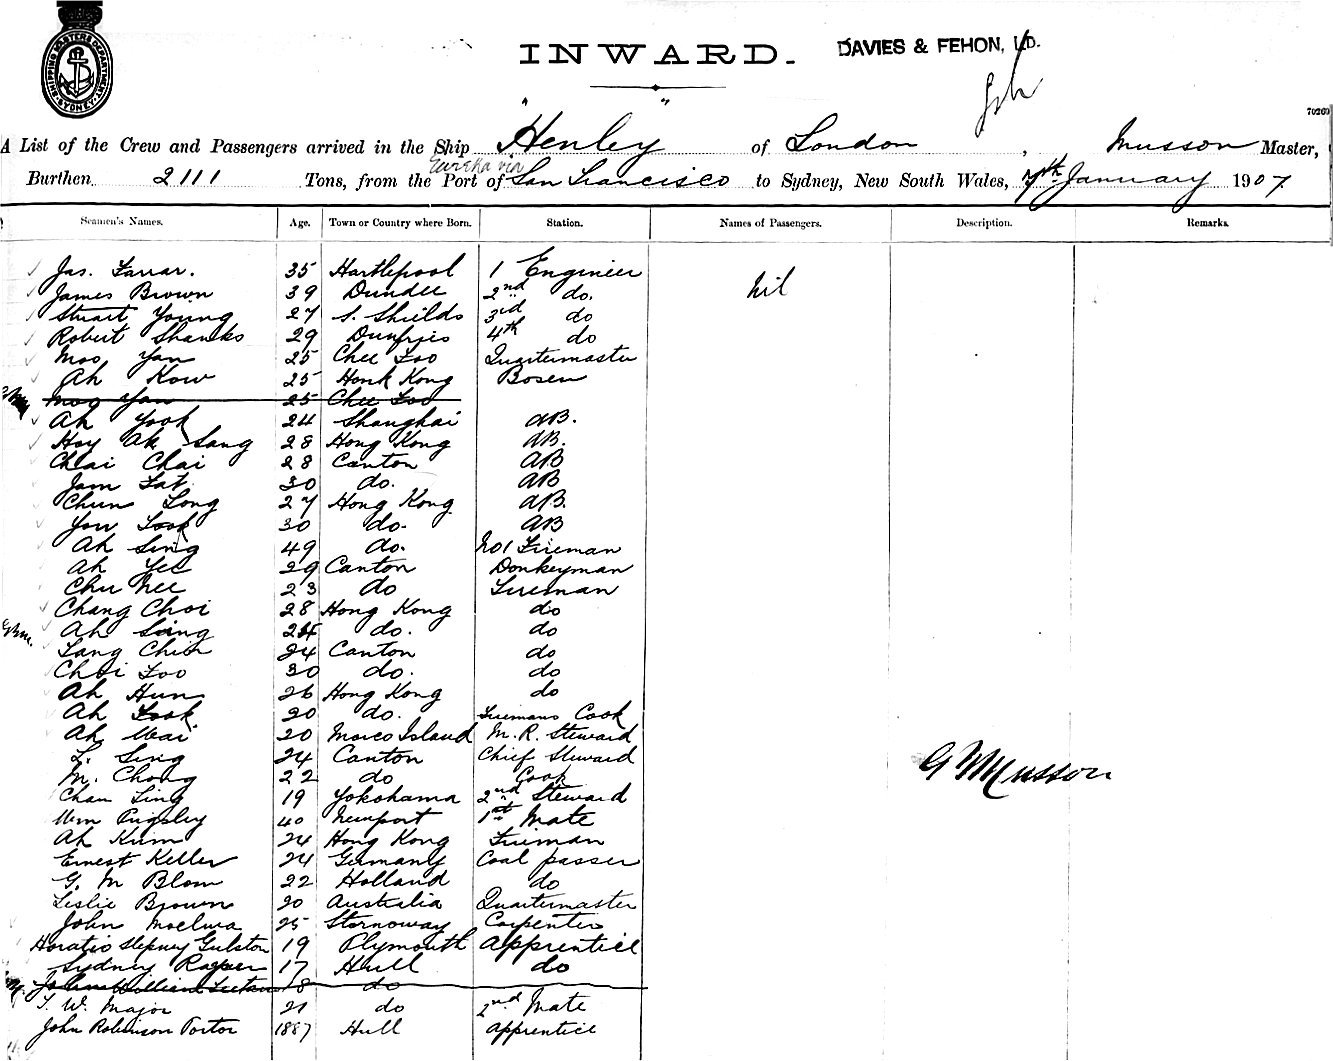 SHIPPING MASTERS DEPARTMENT SYDNEY
INWARD.
DAVIES & FEHON, LD.
70260
A List of the Crew and Passengers arrived in the Ship "Henley" of London, Musson Master,
Eureka via
Burthen 2111 Tons, from the Port of San Francisco to Sydney, New South Wales, 7th January 1907
Seamen's Names. Age. Town or Country where Born. Station. Names of Passengers. Description. Remarks.
Jas. Farrar. 35 Hartlepool 1 Engineer
nil
James Brown 39 Dundee 2nd do.
Stuart Young 27 S. Shields 3rd do
Robert Shanks 29 Dunfries 4th do
Moo Yan 25 Chee Foo Quartermaster
Ah Kow 25 Honk Kong Bosen
Moo Yan 25 Chee Foo
Ah Yook 24 Shanghai AB.
Hoy Ah Sang 28 Hong Kong AB.
Chai Chai 28 Canton AB
Jam Fat 30 do. AB
Chun Long 27 Hong Kong AB.
You Look 30 do. AB
Ah Sing 49 do. No1 Fireman
Ah Yee 29 Canton Donkeyman
Chu Nee 23 do Fireman
Chang Choi 28 Hong Kong do
Ah Sing 24 do. do
Lang Chin 24 Canton do
Choi Foo 30 do. do
Ah Hun 26 Hong Kong do
Ah Look 20 do. Firemans Cook
Ah Wai 20 Moico Island M. R. Steward
L. Sing 24 Canton Chief Steward
G Musson
M. Chong 22 do Cook
Chan Sing 19 Yokohama 2nd Steward
Wm Pugsley 40 Newport 1st Mate
Ah Kum 24 Hong Kong Fireman
Ernest Keller 24 Germany Coal passer
G. M Blom 22 Holland do
Leslie Brown 20 Australia Quartermaster
John 25 Stornoway Carpenter
Horatio Stepney Gulston 19 Plymouth Apprentice
Sydney Rasper 17 Hull do
John William 18 do
T. W. Major 21 do 2nd Mate
John Robinson Porter 1887 Hull Apprentice